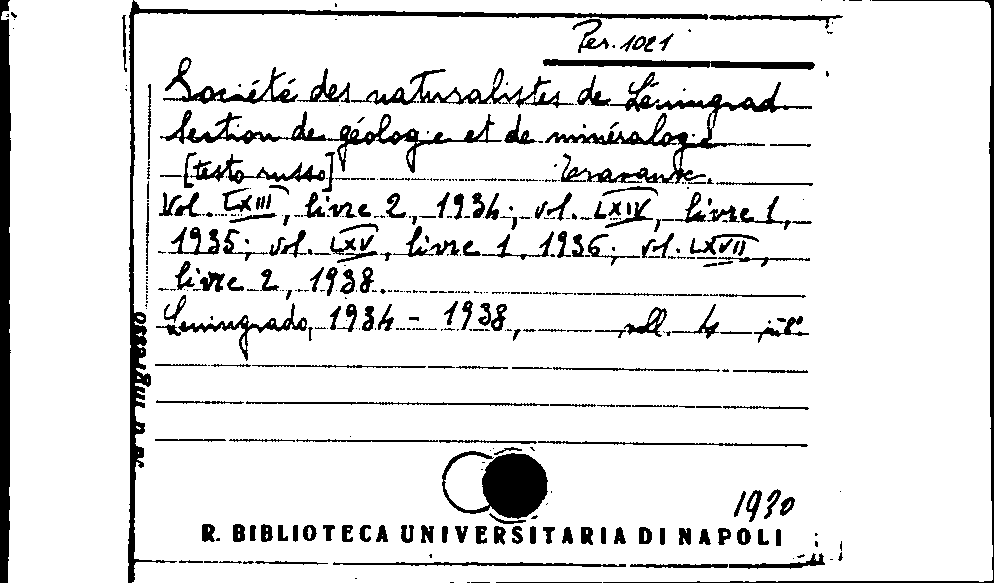 Per. 1021
Société des naturalistes de Léningrad.
Section de géologie et de minéralogie
[testo russo] Travaux.
Vol. LXIII, livre 2, 1934; vol. LXIV, livre 1,
1935; vol. LXV, livre 1, 1936; vol. LXVII,
livre 2, 1938.
Leningrado, 1934 - 1938, voll. 4 in 8°
1930
R. BIBLIOTECA UNIVERSITARIA DI NAPOLI